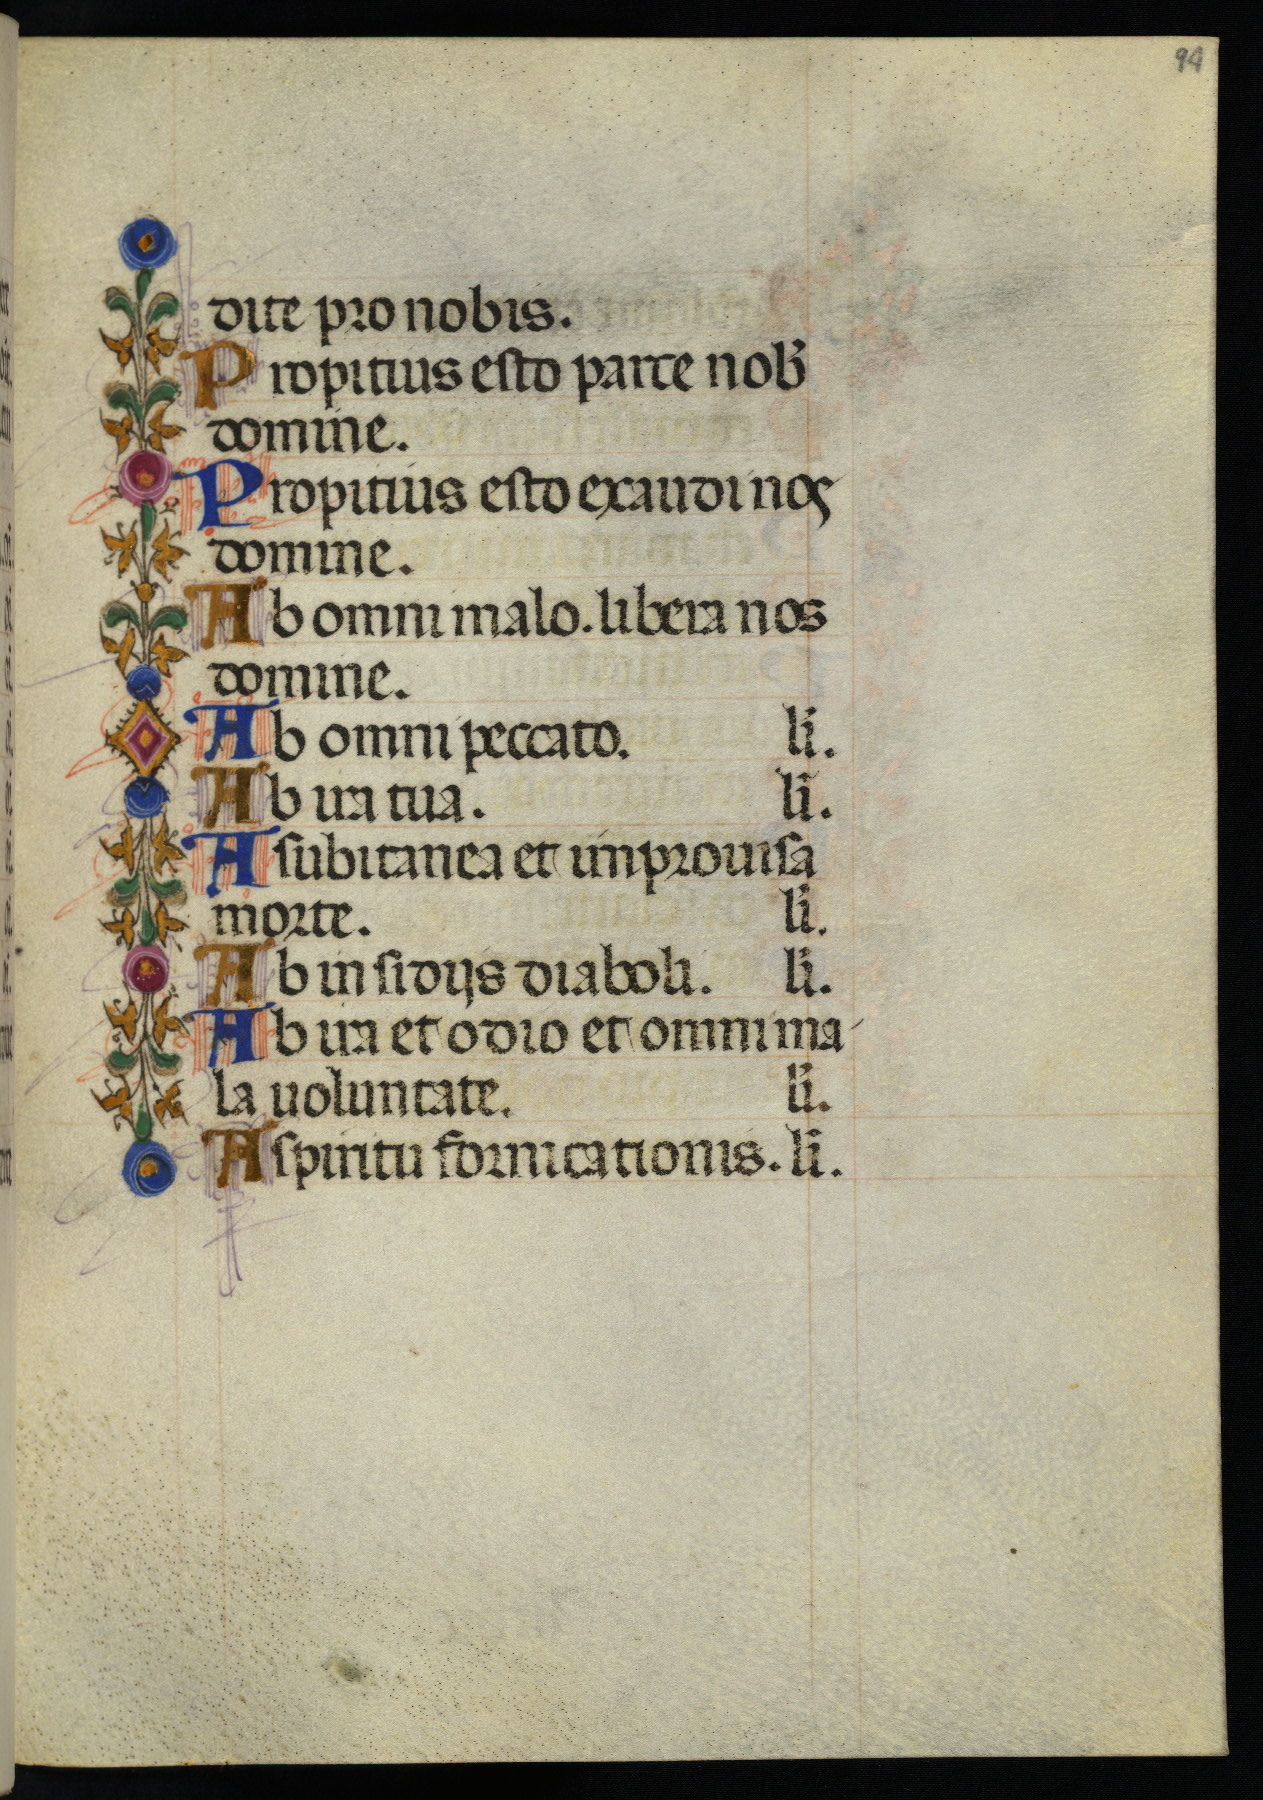 94
dite pro nobis.
Propitius esto parce nob̄
domine.
Propitius esto exaudi nos
domine.
Ab omni malo. libera nos
domine.
Ab omni peccato. li̅.
Ab ira tua. li̅.
A subitanea et improuisa
morte. li̅.
Ab insidijs diaboli. li̅.
Ab ira et odio et omni ma
la uoluntate. li̅.
A spiritu fornicationis. li̅.